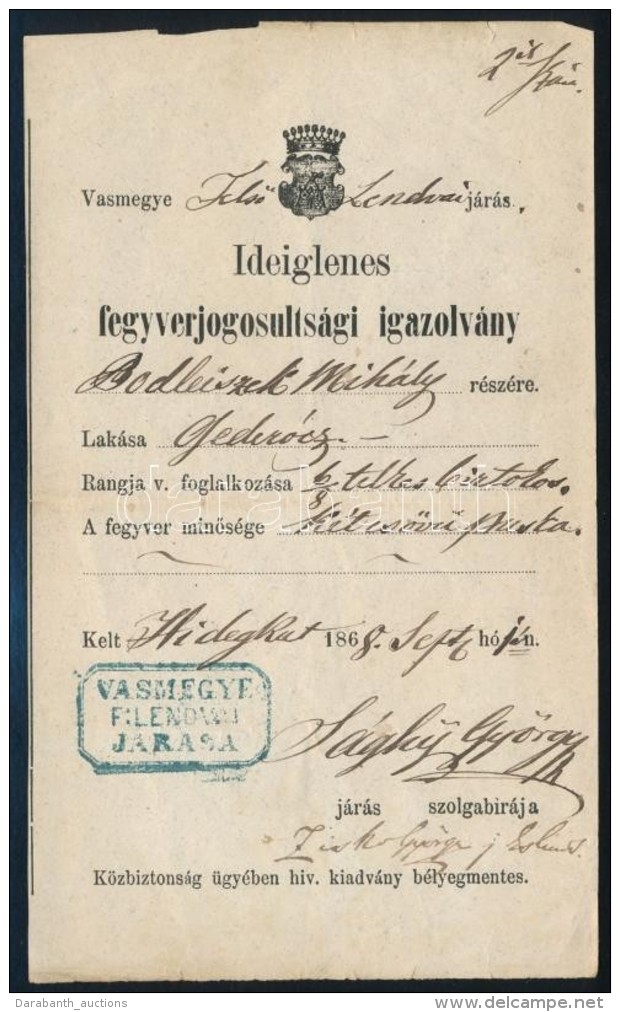 2ik szám.
Vasmegye Felső Lendvai járás.
Ideiglenes
fegyverjogosultsági igazolvány
Bodleiszek Mihály részére.
Lakása Gederócz.-
Rangja v. foglalkozása 6/8 telkes birtokos.
A fegyver minősége Kétcsövű puska.
Kelt Hidegkut 1868. Sept hó 1én.
VASMEGYE
F:LENDVAI
JÁRÁSA
Sághy György
járás szolgabirája
György
Közbiztonság ügyében hiv. kiadvány bélyegmentes.
darabanth
Darabanth_auctions
delcampe.net